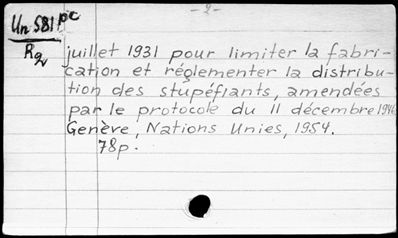 -2-
Un S81pc
Rg
juillet 1931 pour limiter la fabri-
cation et réglementer la distribu-
tion des stupéfiants, amendées
par le protocole du 11 décembre 1946
Genève, Nations Unies, 1954.
78p.